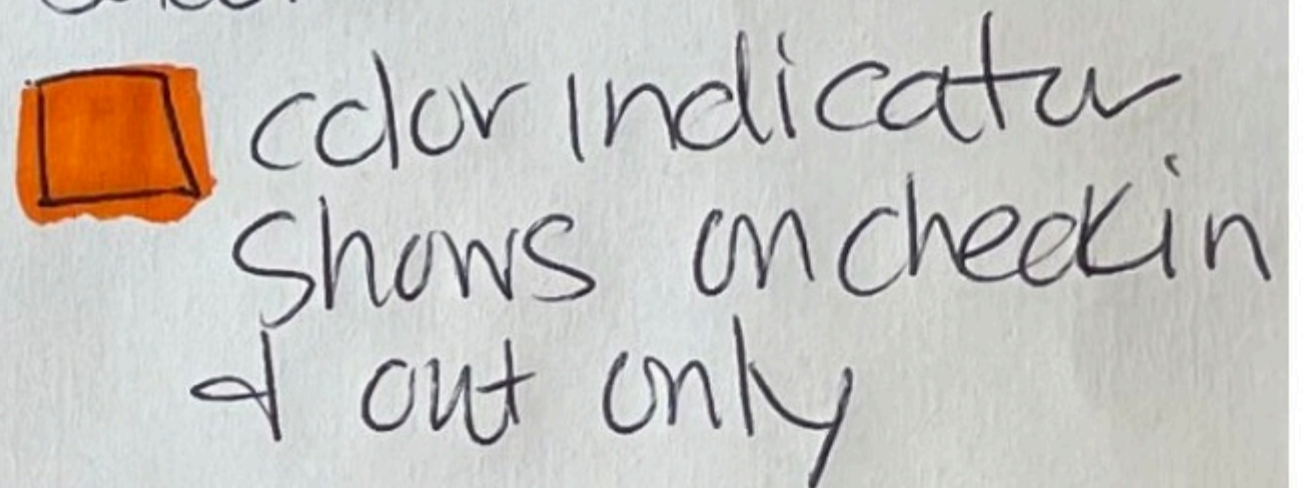 color indicator
shows on checkin
& out only